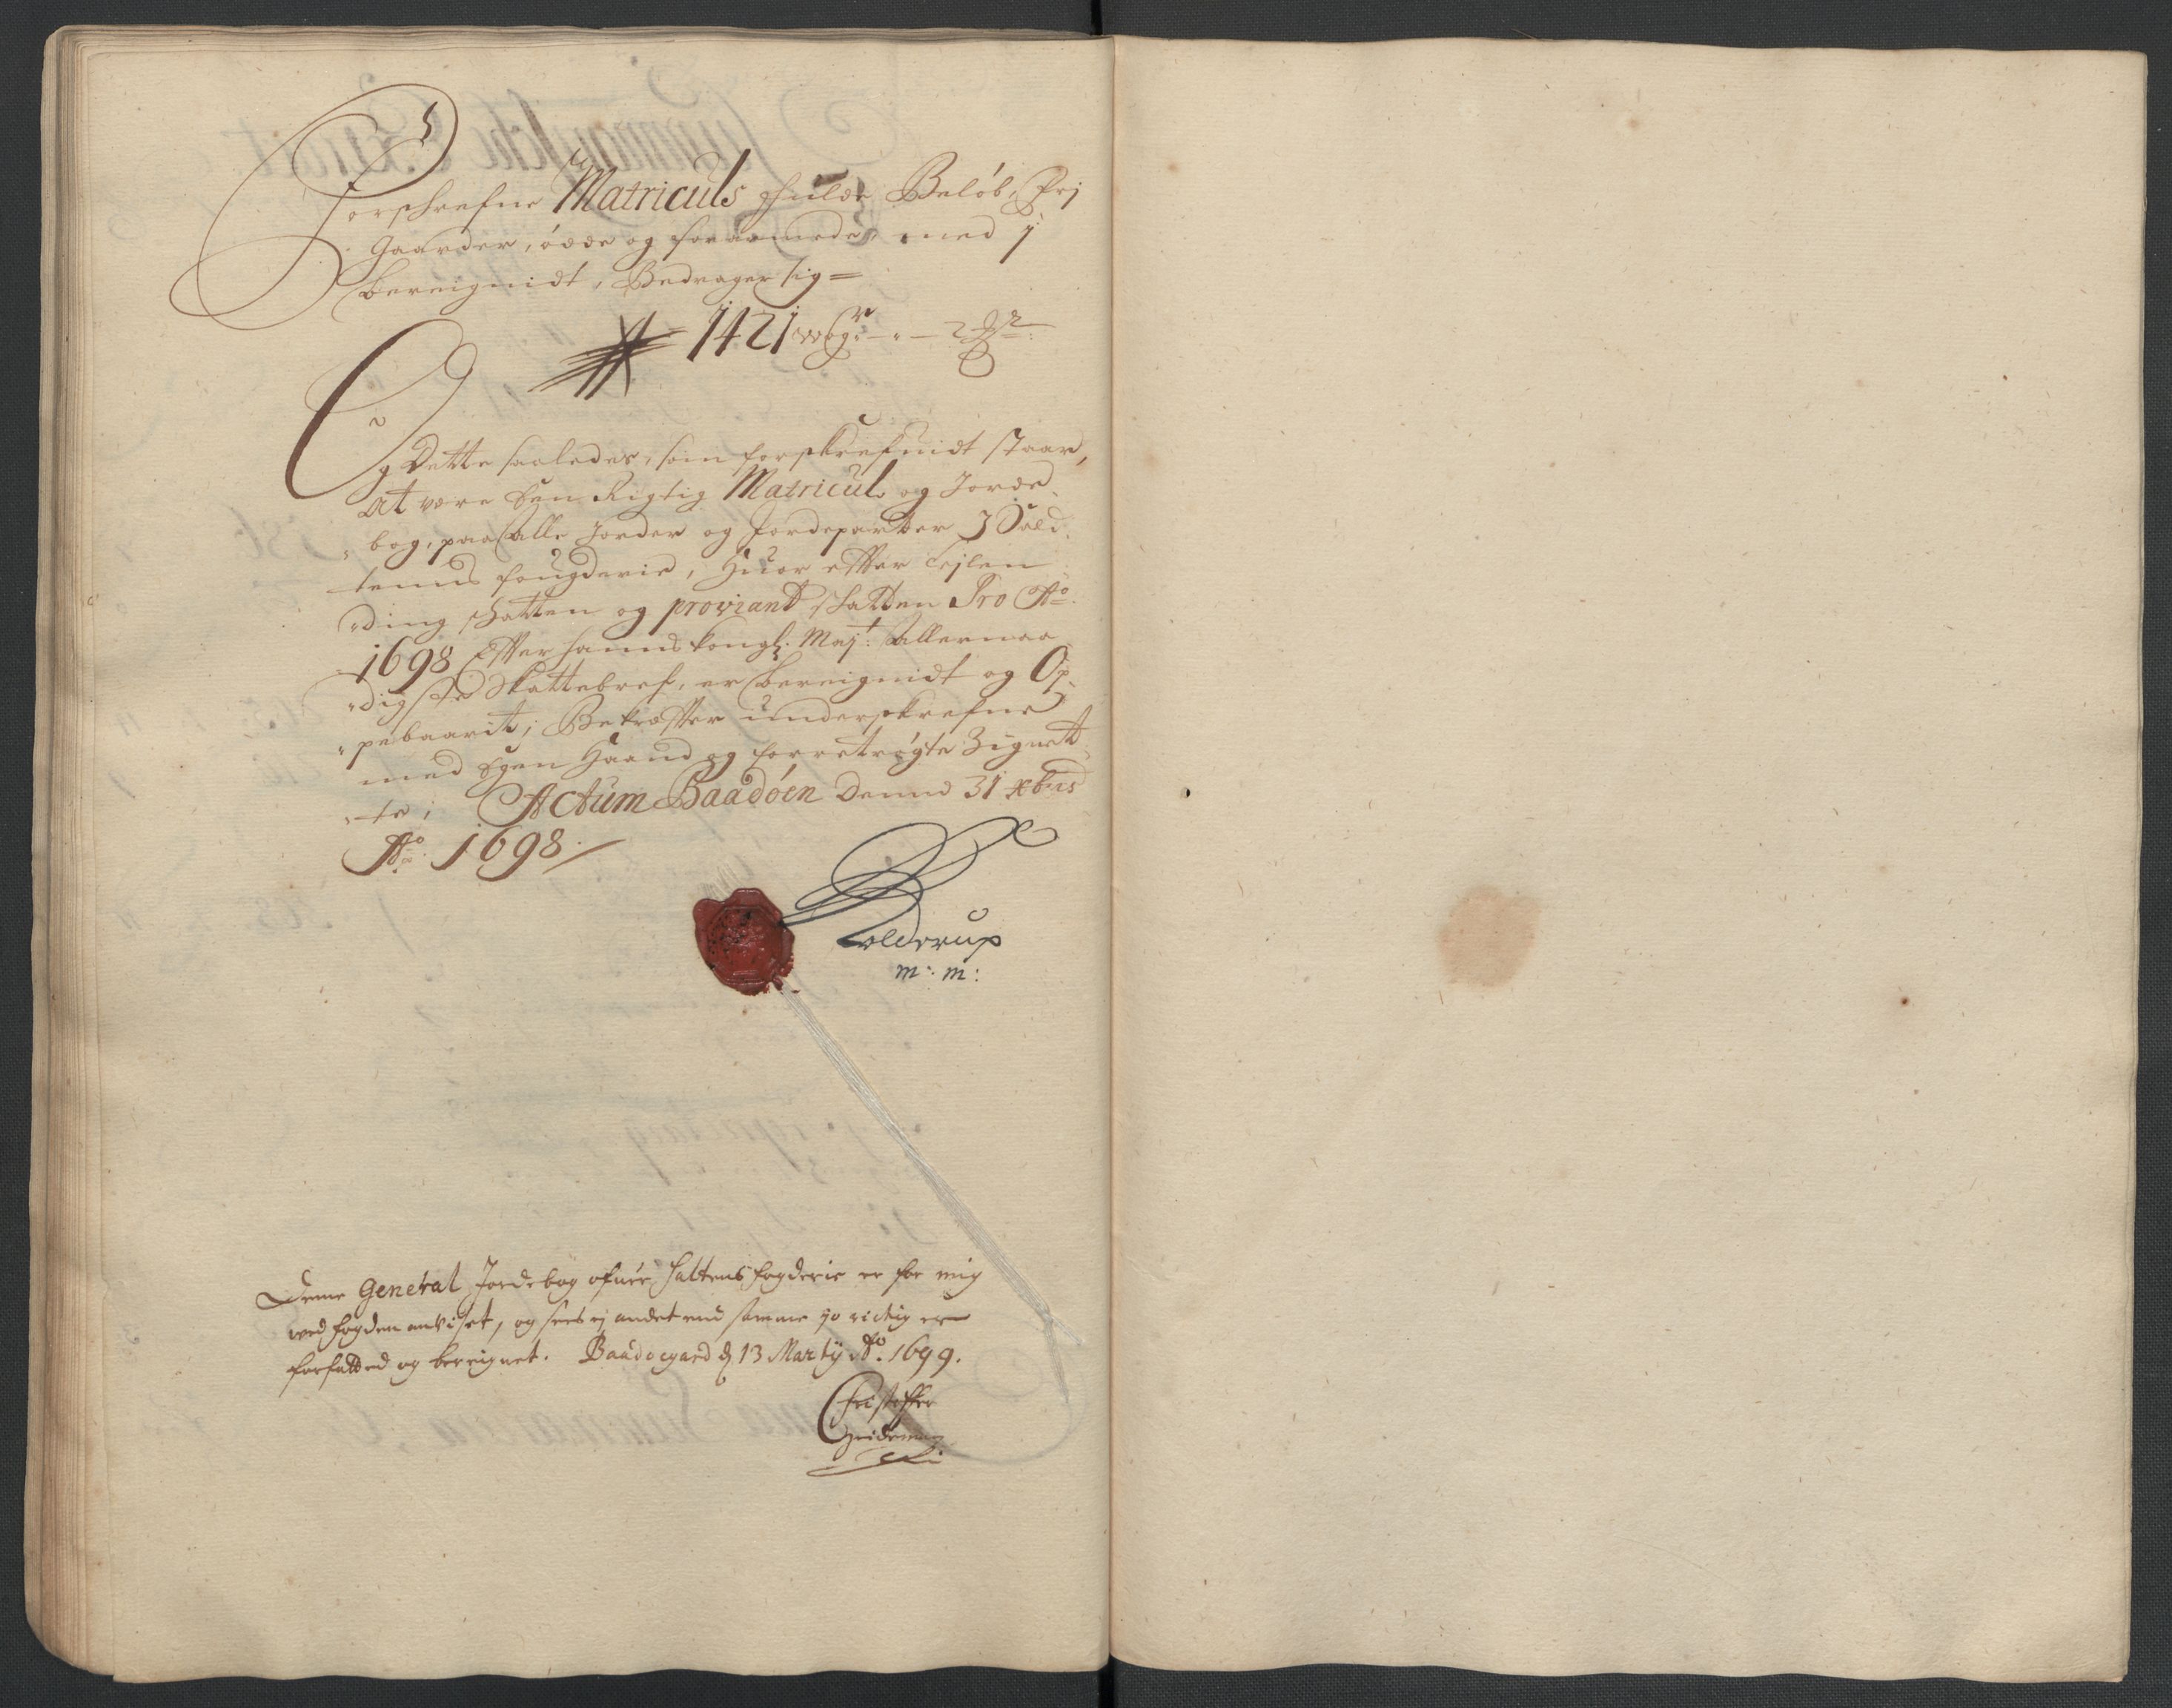 Forschrefne Matriculs schulde Beløb, Frj
Gaarder, øde og forarmede, med j
bereignidt, Bedrager sig =
1421 wog:r - " - 2
Og Dette saaledes, som forskrefuidt staar,
at vere Een Rigtig Matricul og Jorde
bog, paa alle Jorder og Jordeparter J Sald
tens fougderie, Huor effter Lejlen
ding schatten og proviant schatten Pro Ao
1698 Effter hanns kongl. Maj.t allernaa
digste Skattebref, er bereignidt og Op
pebaarit, Bekræffter underskrefne
med Egen Haand og forretrögte Zignett
te, Actum Baadöen Dennd 31 xbris
Ao 1698.
Kolderup
m: m:
Denne General Jordebog ofuer Saltens fogderie er for mig
ved fogden anviset, og sees ej andet end samme jo rictig er
forfatted og bereignet. Baadøegard d 13 Martij Ao. 1699.
Christoffer
Heideman